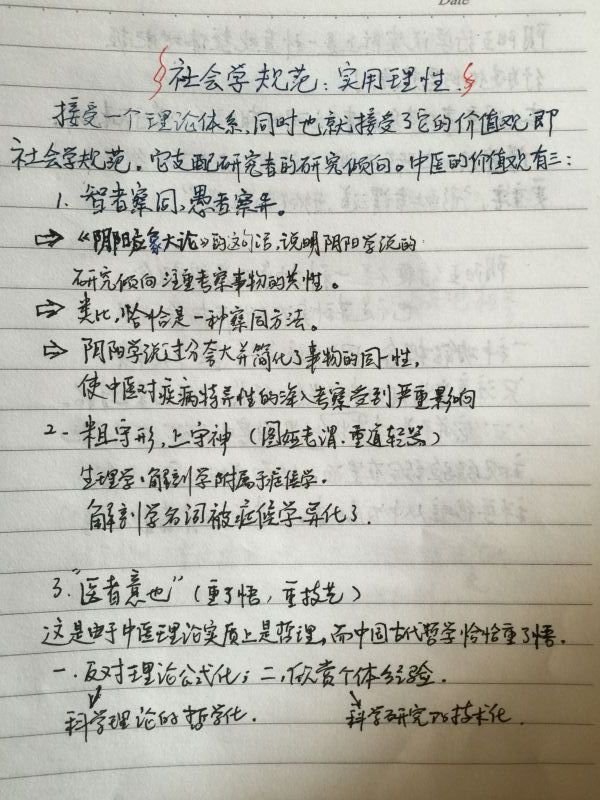 Date
社会学规范：实用理性.
接受一个理论体系，同时也就接受了它的价值观，即
社会学规范。它支配研究者的研究倾向。中医的价值观有三：
1. 智者察同，愚者察异。
⇒ 《阴阳应象大论》的这句话，说明阴阳学说的
研究倾向注重考察事物的共性。
⇒ 类比，恰恰是一种察同方法。
⇒ 阴阳学说过分夸大并简化了事物的同一性，
使中医对疾病特异性的深入考察受到严重影响
2. 粗守形，上守神（重道轻器）
生理学、解剖学附属于症候学。
解剖学名词被症候学异化了.
3. "医者意也"（重了悟，重技艺）
这是由于中医理论实质上是哲理，而中国古代哲学恰恰重了悟.
一. 反对理论公式化；二，欣赏个体经验.
科学理论的哲学化. 科学研究的技术化.